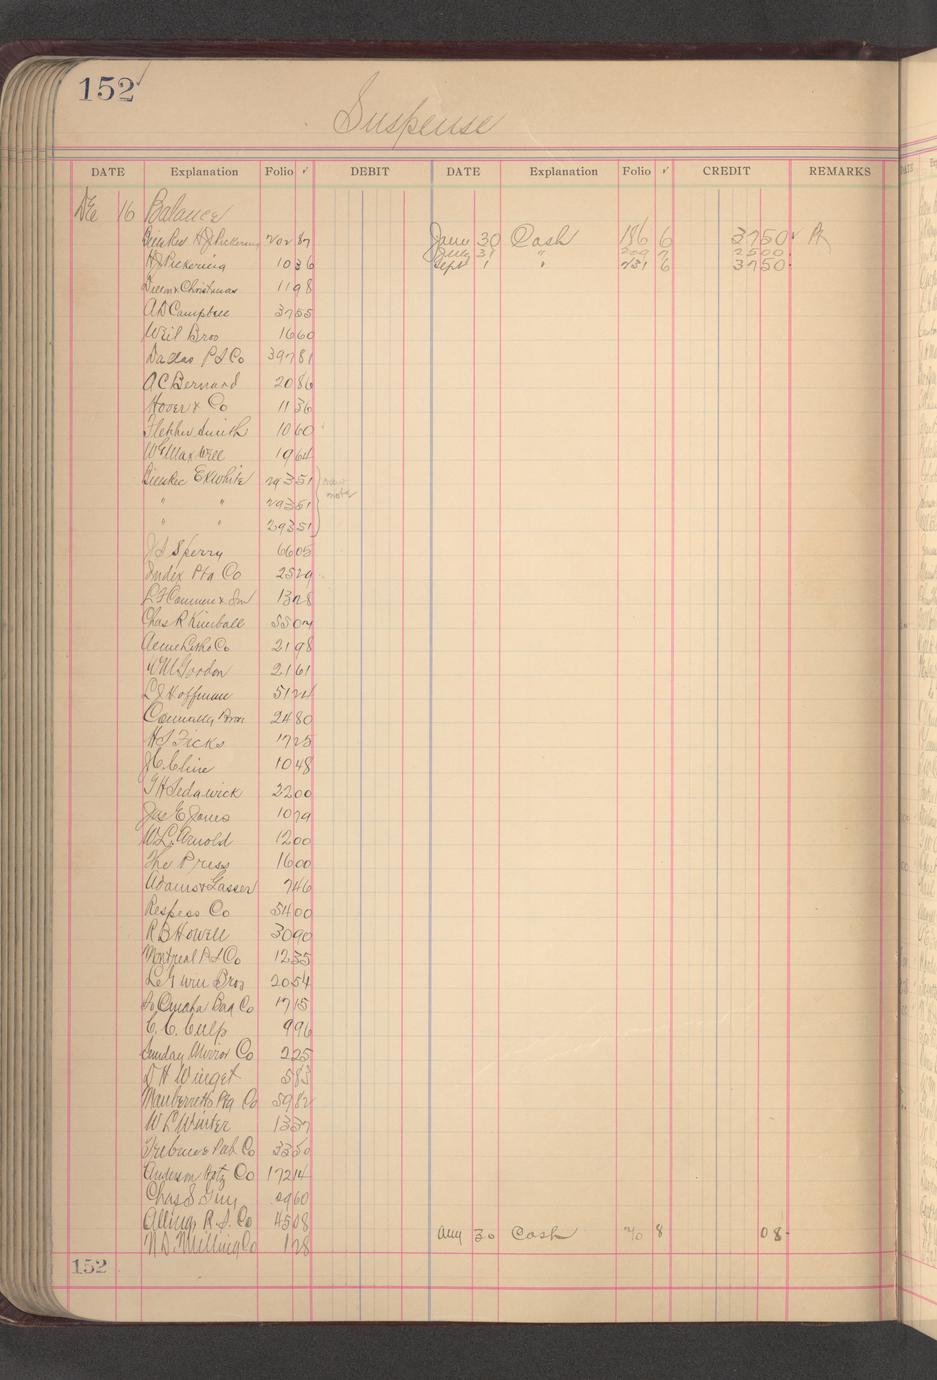 152
Suspense
DATE Explanation Folio ✓ DEBIT DATE Explanation Folio ✓ CREDIT REMARKS
Dec 16 Balance
H J Pickering 202 87 June 30 Cash 186 6 3750
July 31 " 209 7 2500
H J Pickering 10 36 Sept 1 " 231 6 3750
& Christmas 11 98
A D Campbell 37 55
Weil Bros 16 60
Dallas P S Co 397 81
A C Bernard 20 86
Hover & Co 11 36
Fletcher Smith 10 60
W E Maxwell 19 64
E K White 293 51 new note
" " 293 51
" " 293 51
J S Sperry 66 05
Index Ptg Co 25 29
13 28
Chas R Kimball 55 07
Acme Litho Co 21 98
W M Gordon 21 61
L J Hoffman 51 24
Connally Bros 24 80
H S Ficks 17 25
J C Cline 10 48
T H Sedgwick 22 00
Jas E Jones 10 79
W L Arnold 12 00
The Press 16 00
Adams & Gasser 7 46
Respess Co 54 00
R B Howell 30 90
Montreal P S Co 12 35
Bros 20 54
So Omaha Bag Co 17 15
C. C. Culp 9 96
Sunday Mirror Co 2 25
D H Winget 5 83
Ptg Co 59 82
W L Winter 13 37
Tribune Pub Co 33 50
Anderson Co 172 14
Chas S Guy 60
Alling R. S. Co 45 08
N D Milling Co 1 28 Aug 30 Cash 8 08
152